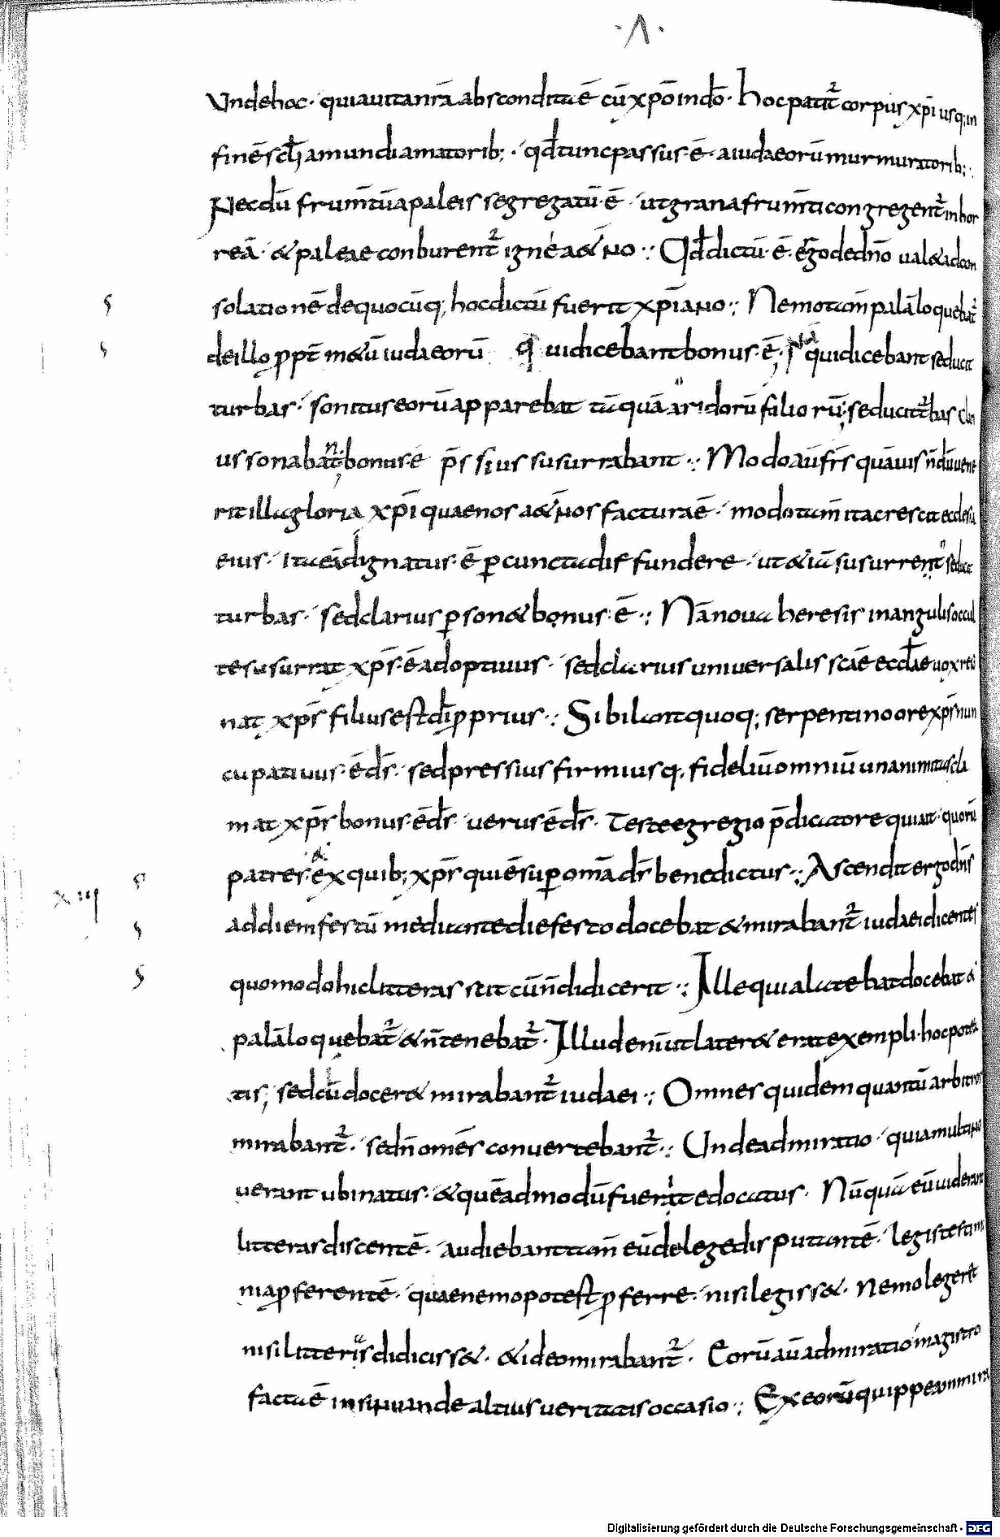 ·Λ·
Vndehoc· quiauitanr̄a absconditaē cū xp̄o indō· Hoc patit᷑ corpus xp̄i usq;in
finēsc̄li amundi amatorib;· qd̄ tunc passus·ē· aiudaeorū murmuratorib;·
Necdū frum̄tū apaleis segregatū·ē· ut grana frum̄ti congregent᷑ inhor
reā· & paleae conburent᷑ igne a&ͬno·: Qd̄ dictū·ē· ergo dedn̄o ual& adcon
solationē dequocūq; hocdictū fuerit xp̄iano·: Nemotam̄ palā loquebat᷑
deillo ꝓpt̄ m&ū iudaeorū qui dicebant bonus·ē· quidicebant seducit
turbas· sonitus eorū apparebat tā quā aridorū foliorū; seducit t᷑bas clari
us sonabat᷑; bonus·ē p̄s sius susurrabant·: Modo aū fr̄s quāuis n̄dū uene
rit illa gloria xp̄i quae nos a&ͬnos facturaē· modotam̄ ita crescit ecclesia
eius· Ita eā dignatus·ē ꝑcuncta diffundere· ut & iā susurrent seducit
turbas· sed clarius ꝑson& bonus·ē·: Nā noua heresis inangulis occul
te susurrat xp̄s·ē adoptiuus· sed clarius uniuersalis scāe eccl̄ae uox reso
nat xp̄s filius est dī ꝓprius·: Sibilant quoq; serpentino ore xp̄s nun
cupatiuus·ē ds̄· sed pressius firmiusq; fideliū omniū unanimitas cla
mat xp̄s bonus·ēds̄· uerus·ēds̄· Teste egregio p̄dicatore quiait· quorū
patres· & ex quib; xp̄s quiē sup omā ds̄ benedictus·: Ascendit ergo dn̄s
XIIII
ad diem festū mediante die festo docebat & mirabant᷑ iudaei dicentes
quomodo hic litteras scit cū n̄ didicerit·: Ille quialatebat docebat &
palā loquebat᷑ & n̄ tenebat᷑· Illud enī ut later& erat exempli· hoc potesta
tis; sed cū docer& mirabant᷑ iudaei·: Omnes quidem quantū arbitror
mirabant᷑· sed n̄ omēs conuertebant᷑·: Unde admiratio· quia multi no
uerant ubi natus· & quē admodū fuerit edocatus· Nūquā eū uiderant
litteras discentē· audiebant tam̄ eū delege disputantē· legis testimo
nia ꝓferentē· quae nemo potest ꝓferre· nisi legiss&· nemo leger&
nisi litteras didiciss&· & ideo mirabant᷑· Eorū aū admiratio magistro
facta ē insinuandae altius ueritatis occasio·: Ex eorū quippe ammira
Digitalisierung gefördert durch die Deutsche Forschungsgemeinschaft - DFG